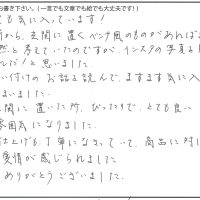 お書き下さい。(一言でも文章でも絵でも大丈夫です!)
ても気に入っています!
から、玄関に置くベンチ風のものがあれば
然と考えていたのですが、インスタの写真を見
んだ!と思いました。
い付けのお話も読んで、ますます気に入
まいました。
関に置いた所、ぴったりで、とても良い
雰囲気になりました。
仕上げも丁寧になさっていて、商品に対
愛情が感じられました
ありがとうございました。